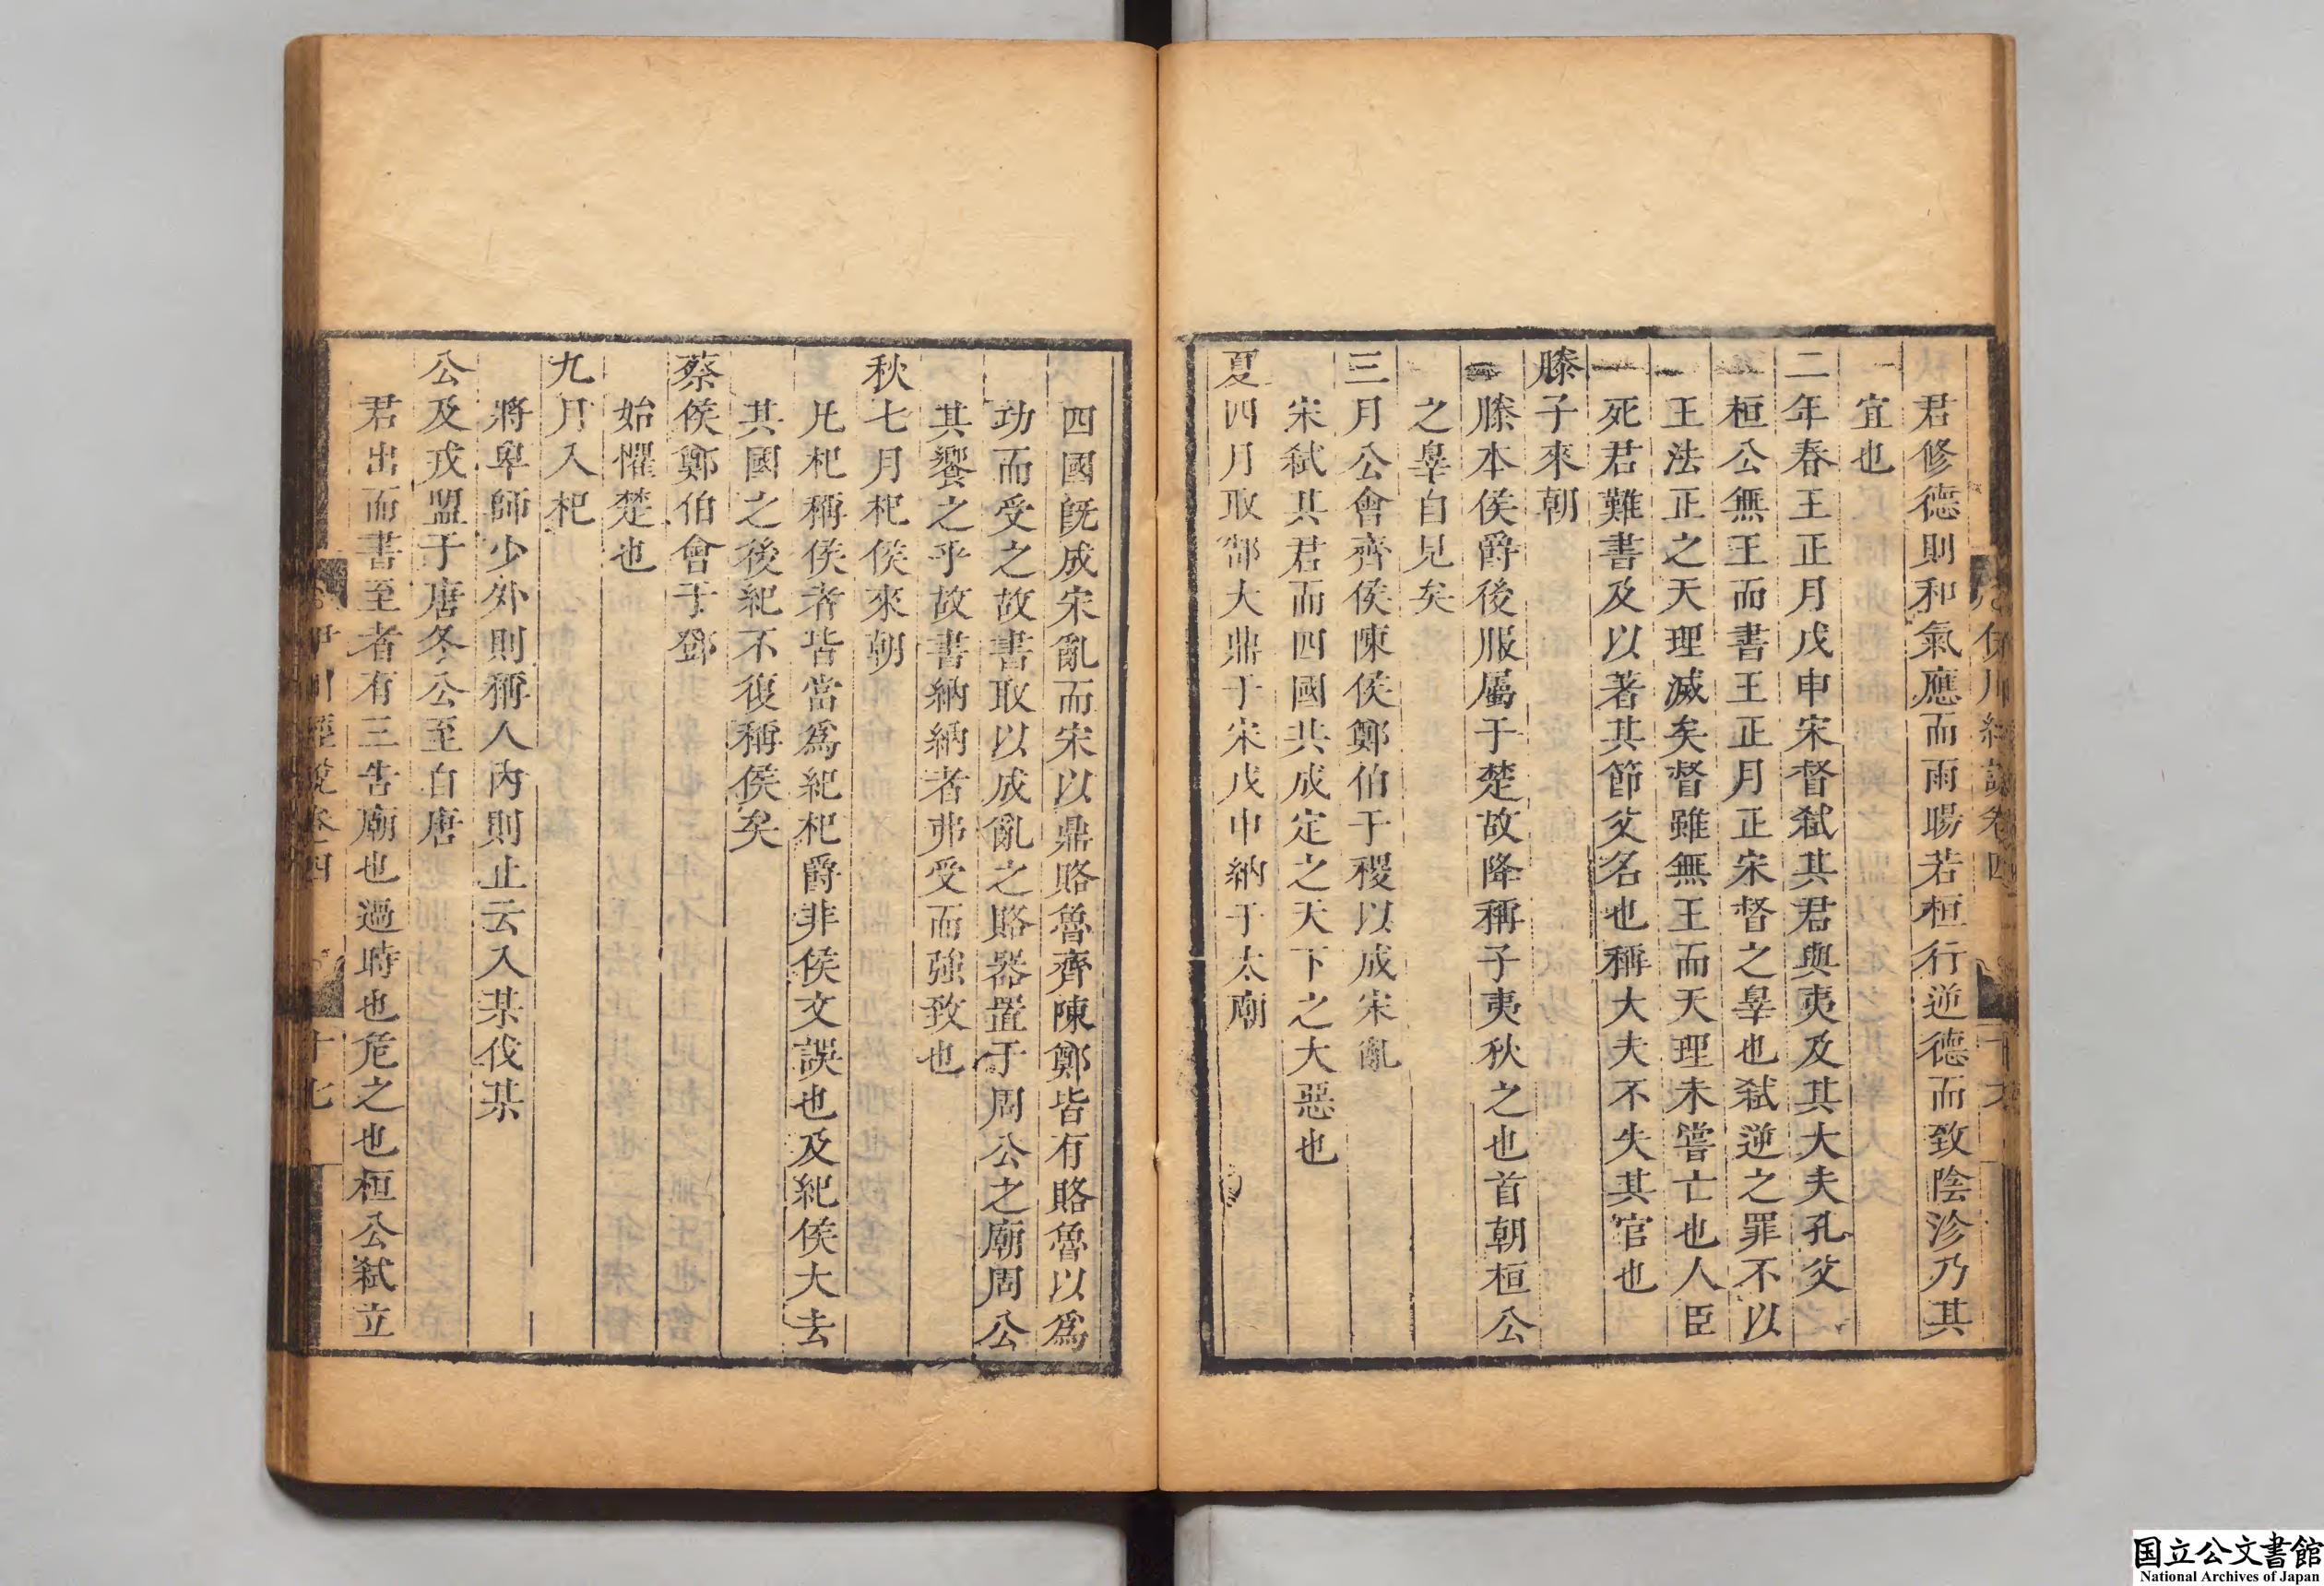 君修德則和氣應而雨暘若桓行逆德而致陰沴乃其
宜也
二年春王正月戊申宋督弑其君與夷及其大夫孔父
桓公無王而書王正月正宋督之辠也弑逆之罪不以
王法正之天理滅矣督雖無王而天理未嘗亡也人臣
死君難書及以著其節父名也稱大夫不失其官也
滕子來朝
滕本侯爵後服屬于楚故降稱子夷狄之也首朝桓公
之辠自見矣
三月公會齊侯陳侯鄭伯于稷以成宋亂
宋弑其君而四國共成定之天下之大惡也
夏四月取郜大鼎于宋戊申納于太廟
四國旣成宋亂而宋以鼎賂魯齊陳鄭皆有賂魯以爲
功而受之故書取以成亂之賂器置于周公之廟周公
其饗之乎故書納納者弗受而強致也
秋七月杞侯來朝
凡杞稱侯者皆當爲紀杞爵非侯文誤也及紀侯大去
其國之後紀不復稱侯矣
蔡侯鄭伯會于鄧
始懼楚也
九月入杞
將卑師少外則稱人內則止云入某伐某
公及戎盟于唐冬公至自唐
君出而書至者有三告廟也過時也危之也桓公弑立
伊川經說卷四
十七
国立公文書館
National Archives of Japan